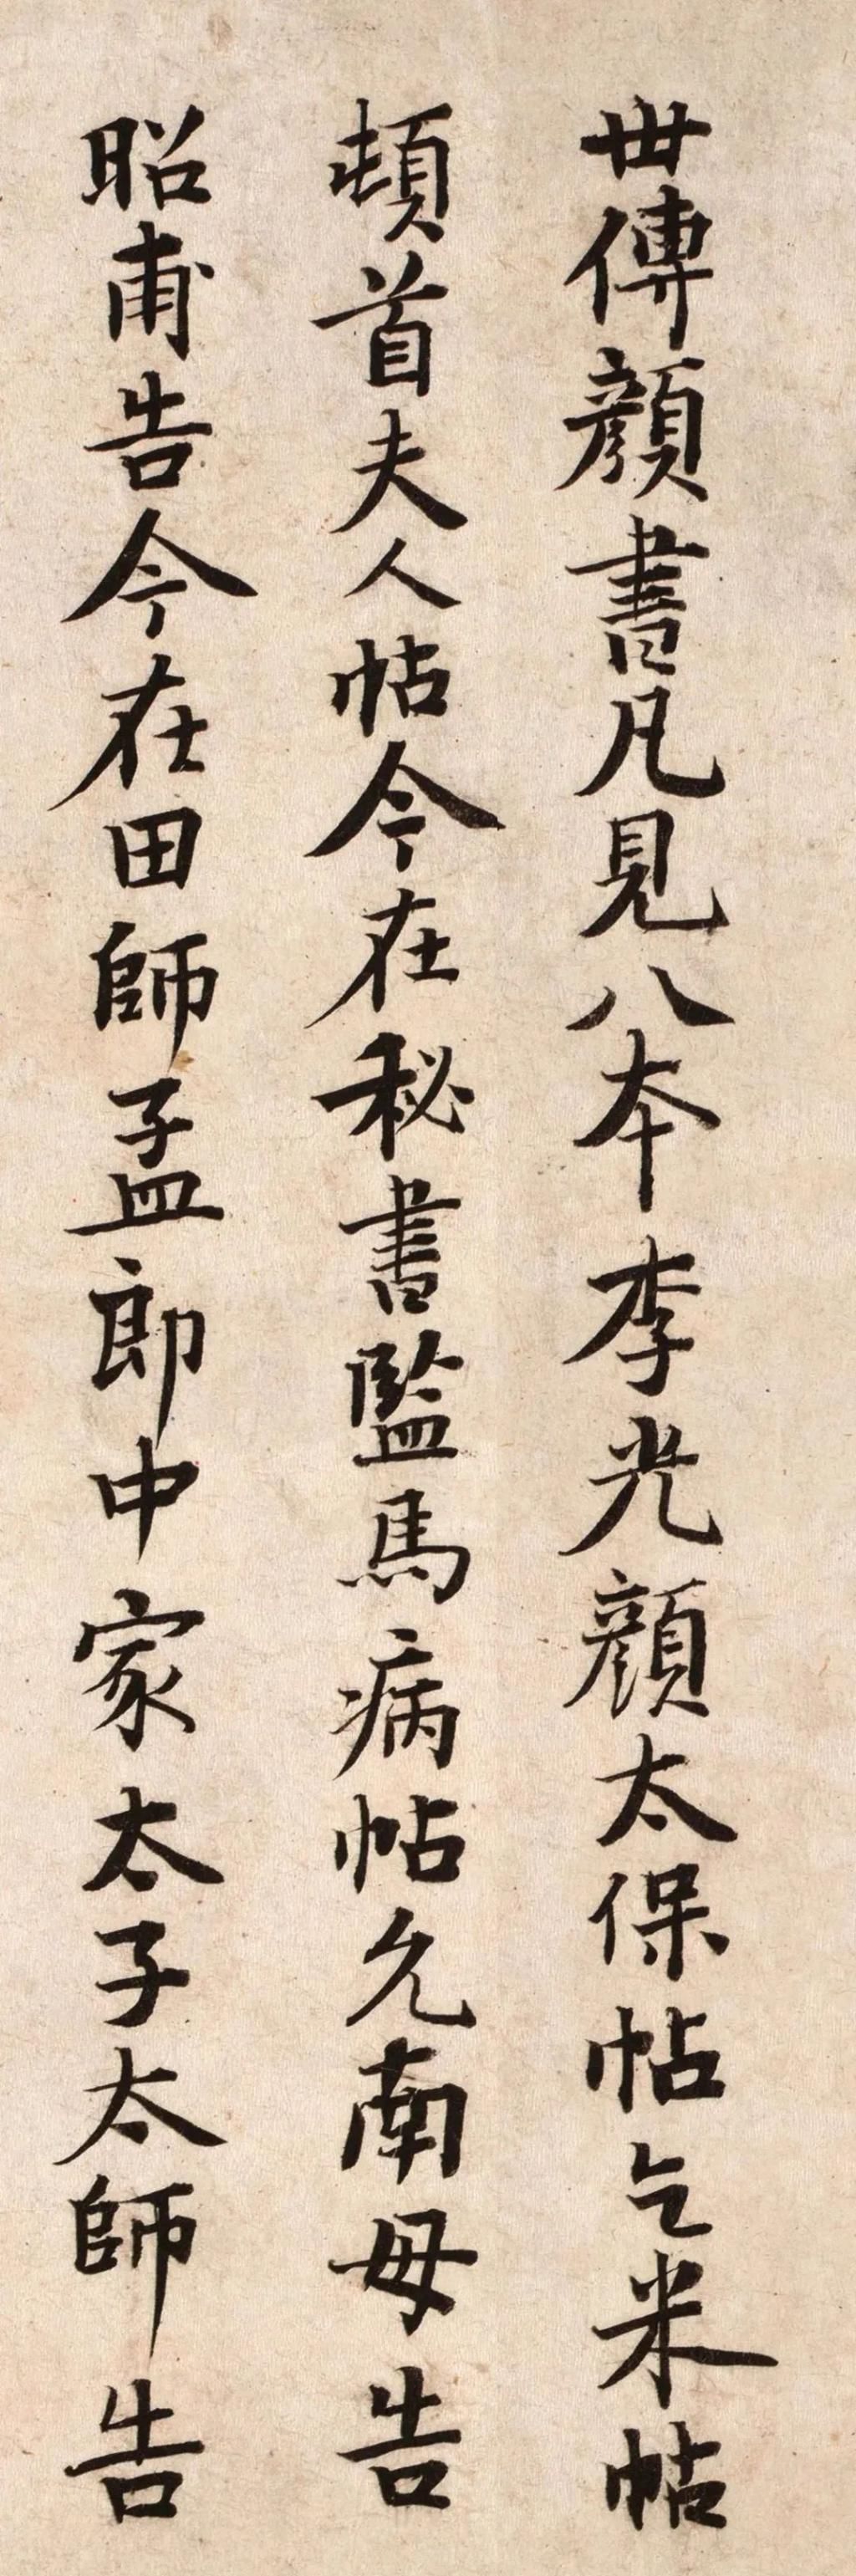 世傳顏書凡見八本李光顏太保帖乞米帖
頓首夫人帖今在秘書監馬病帖允南母告
昭甫告今在田師孟郎中家太子太師告